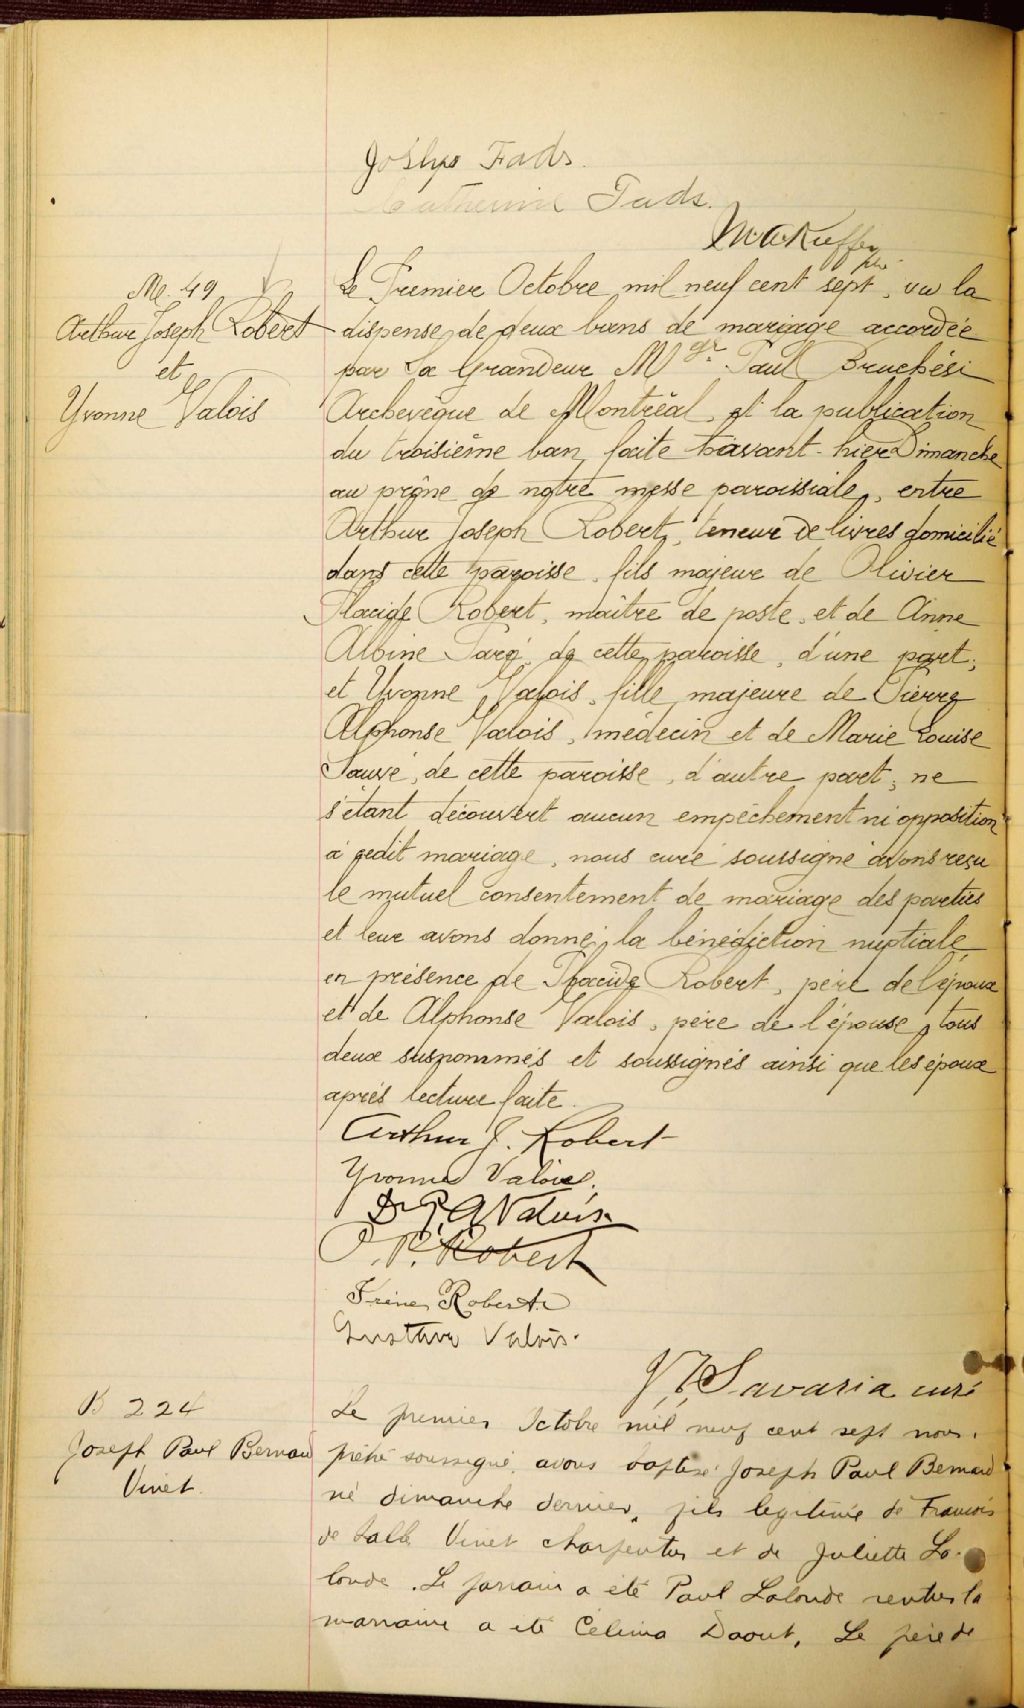 Fads.
Catherine Fads.
M. 49
Arthur Joseph Robert
et
Yvonne Valois
Le Premier Octobre mil neuf cent sept, vu la
dispense de deux bans de mariage accordée
par Sa Grandeur Mgr. Paul Bruchési
Archevêque de Montréal, et la publication
du troisième ban faite avant-hier Dimanche
au prône de notre messe paroissiale, entre
Arthur Joseph Robert, teneur de livres domicilié
dans cette paroisse, fils majeur de Olivier
Placide Robert, maître de poste, et de Anne
Albine Paré de cette paroisse, d'une part;
et Yvonne Valois, fille majeure de Pierre
Alphonse Valois, médecin et de Marie Louise
Sauvé, de cette paroisse, d'autre part; ne
s'étant découvert aucun empêchement ni opposition
à cedit mariage, nous curé soussigné avons reçu
le mutuel consentement de mariage des parties
et leur avons donné la bénédiction nuptiale
en présence de Placide Robert, père de l'époux
et de Alphonse Valois, père de l'épouse, tous
deux susnommés et soussignés ainsi que les époux
après lecture faite.
Arthur J. Robert
Yvonne Valois.
Dr P. A Valois
O. P. Robert
Irène Robert
Gustave Valois.
Savaria curé
B 224
Joseph Paul Bernard
Vinet.
Le premier Octobre mil neuf cent sept nous,
prêtre soussigné, avons baptisé Joseph Paul Bernard
né dimanche dernier, fils légitime de François
de Salle Vinet charpentier et de Juliette La-
londe. Le parrain a été Paul Lalonde rentier la
marraine a été Célima Daout. Le père de